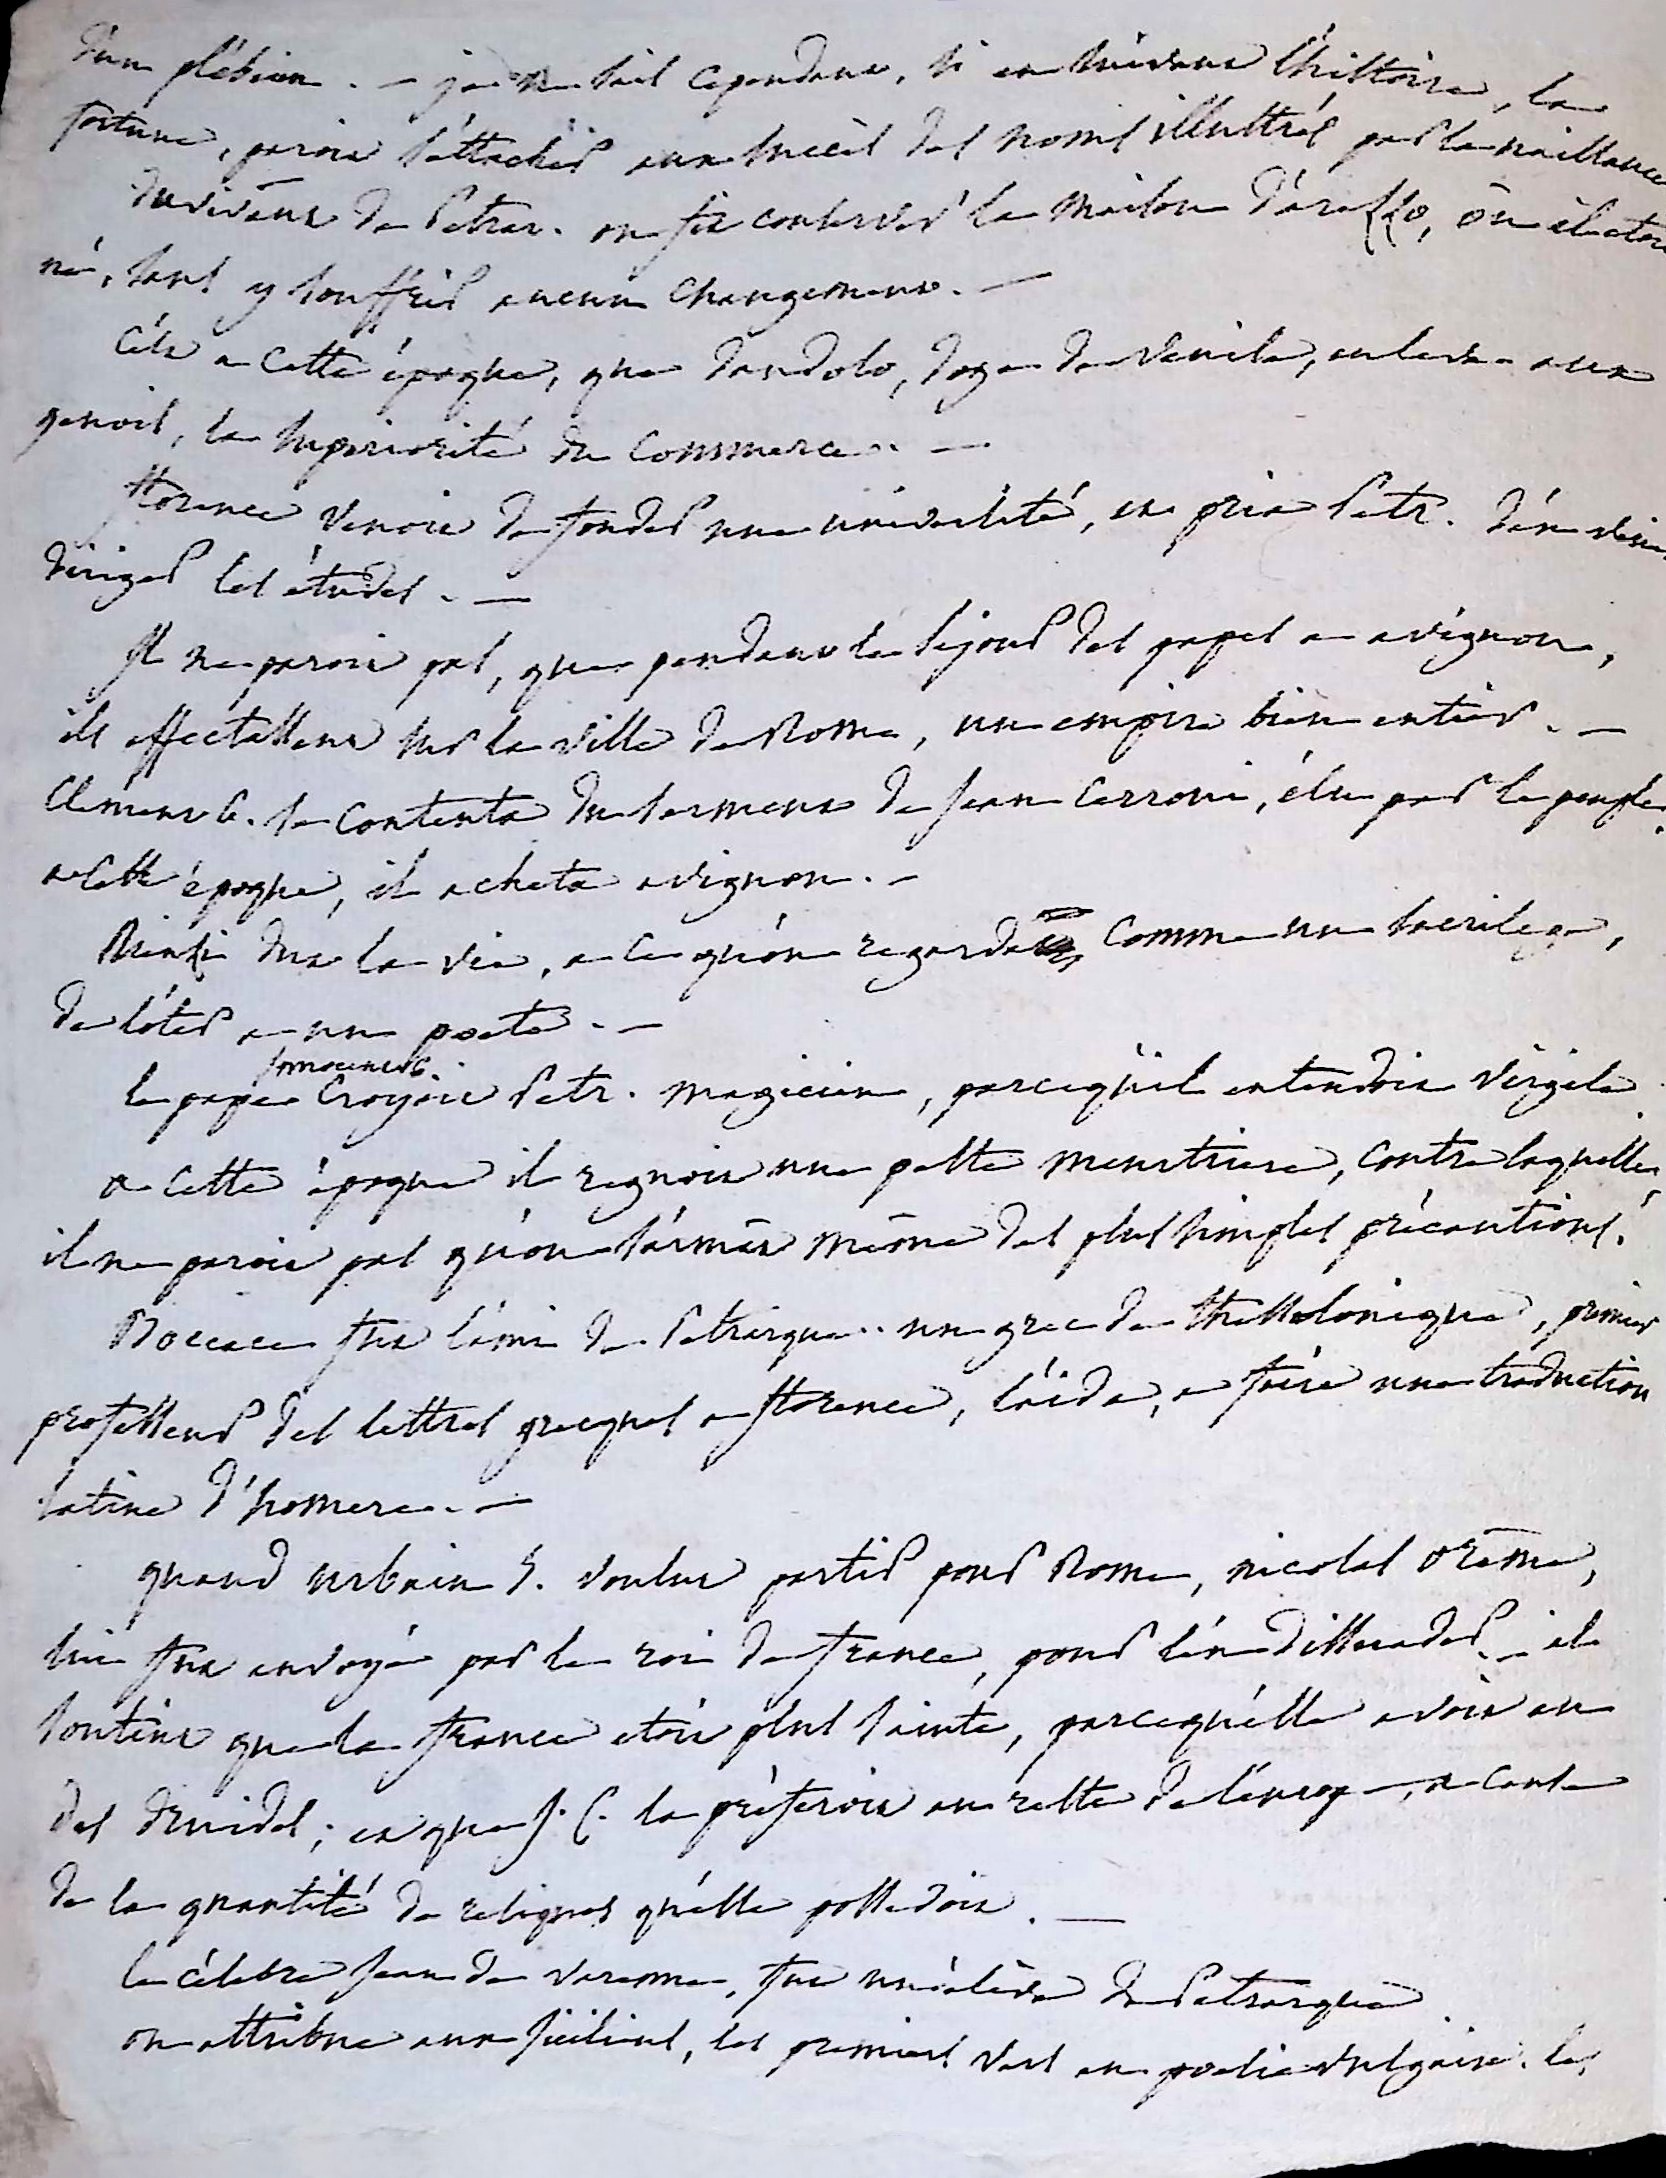 d'un plébéien. — je ne sais cependant, si en suivant l'histoire, la
fortune, paroit s'attacher aux succès des noms illustrés par la naissance
du vivant de Petrar. on fit conserver la maison d'arezzo, ou il etoit
né, sans y souffrir aucun changement. —
c'est a cette époque, que dandolo, doge de venise, enleva aux
genois, la superiorité du commerce. —
florence venoit de fonder une université, on pria Petr. d'en venir
diriger les études. —
Il ne paroit pas, que pendant le sejour des papes a avignon,
ils affectassent sur la ville de Rome, un empire bien entier. —
Clément 6. se contenta du serment de Jean Cerroni, élu par le peuple.
a cette époque, il acheta avignon. —
Rienzi dut la vie, a ce qu'on regarda comme un sacrilege,
de l'oter a un poete. —
le pape innocent 6. croyoit Petr. magicien, parcequ'il entendoit virgile.
a cette époque il regnoit une peste meurtriere, contre laquelle,
il ne paroit pas qu'on s'armât même des plus simples précautions.
Boccace fut l'ami de Petrarque. un grec de thessalonique, premier
professeur des lettres grecques a florence, l'aida, a faire une traduction
latine d'homere. —
quand urbain 5. voulut partir pour Rome, nicolas orême,
lui fut envoyé par le roi de france, pour l'en dissuader. — il
soutint que la france etoit plus sainte, parcequ'elle avoit eu
des druides; et que J. C. la préferoit au reste de l'europe, a cause
de la quantité de reliques qu'elle possedoit. —
le célebre Jean de ravenne, fut un élève de Petrarque.
on attribue aux siciliens, les premiers vers en poesie vulgaire. les